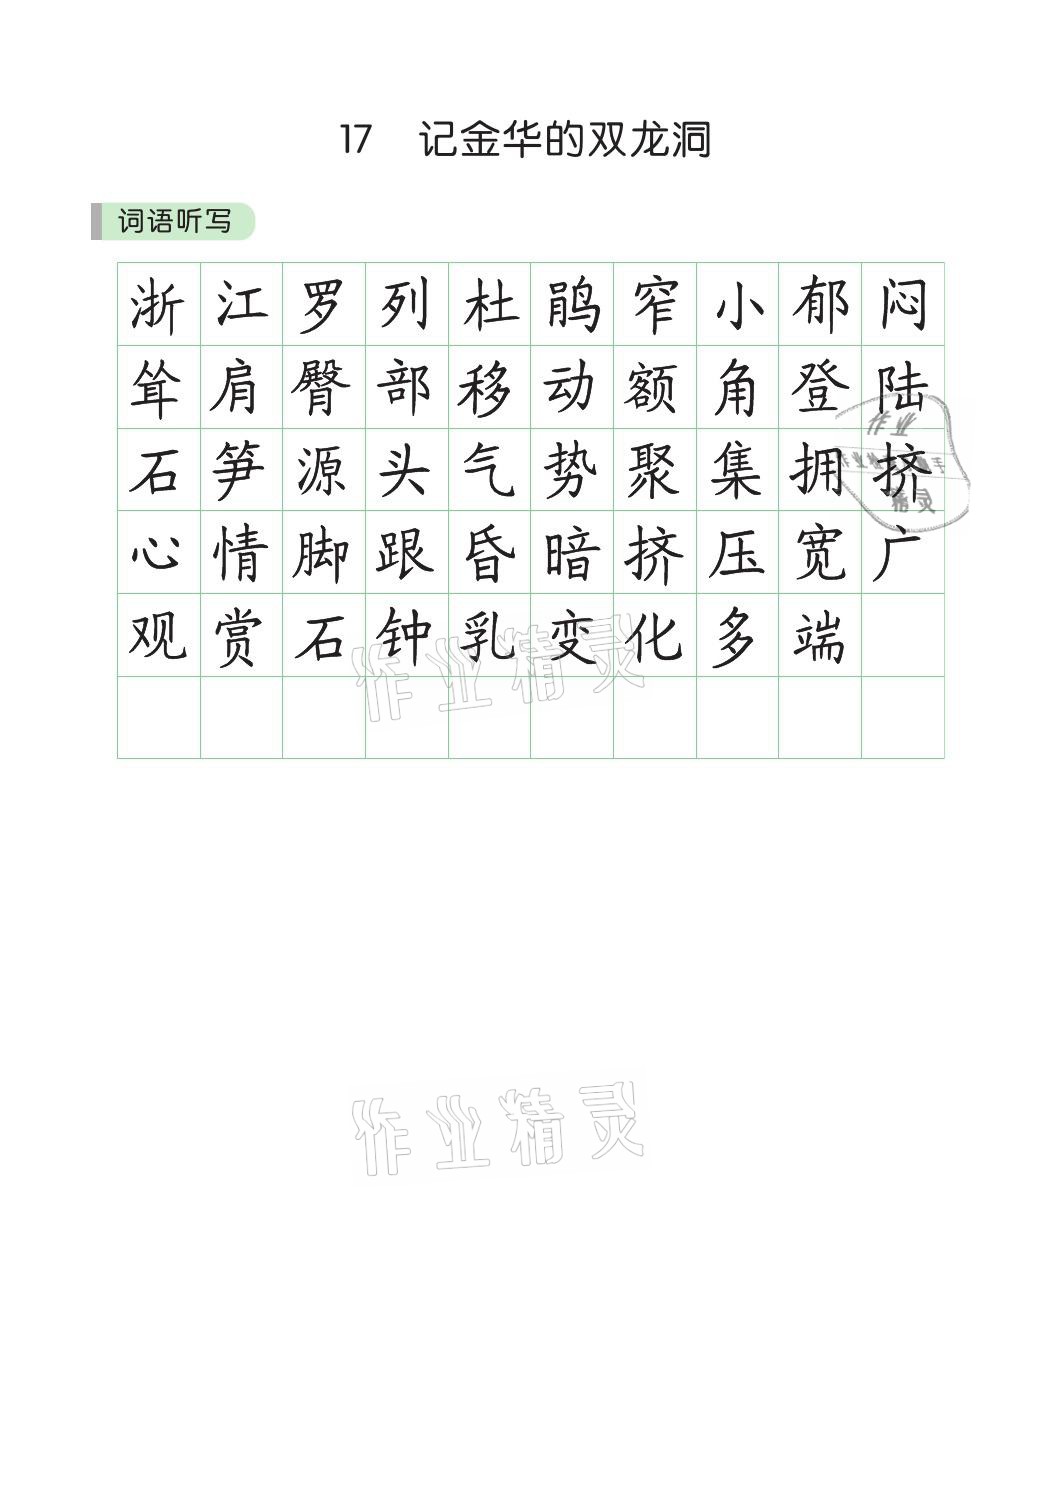 17 记金华的双龙洞
词语听写
浙江罗列杜鹃窄小郁闷
耸肩臀部移动额角登陆
石笋源头气势聚集拥挤
心情脚跟昏暗挤压宽广
观赏石钟乳变化多端
作业
作业精灵
作业精灵
精灵